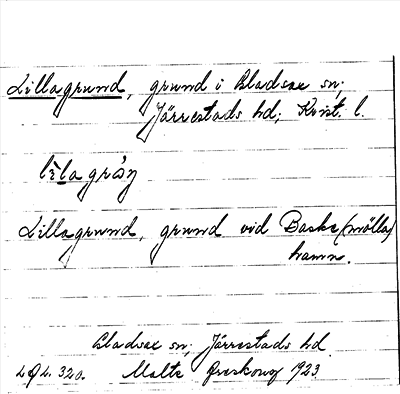 Lillagrund, grund i Bladsax sn;
Järrestads hd; Krist. l.
Lillagrund, grund vid Baske (mölla)
hamn.
Bladsax sn, Järrestads hd.
320. Malte 1923